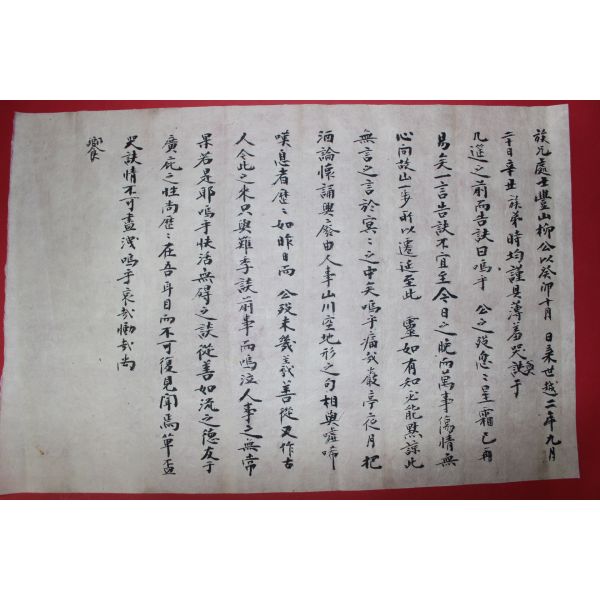 族兄處士豊山柳公以癸卯十月 日棄世越二年九月
二十日辛丑 族弟時均謹具薄羞哭訣于
几筵之前而告訣曰嗚乎 公之歿悤〻星霜已再
易矣一言告訣不宜至今日之晩而萬事傷情無
心向故山一事所以遷延至此 靈如有知必能黙諒此
無言之言於冥〻之中矣嗚乎痛哉巖亭夜月把
酒論懷誦興廢由人事山川空地形之句相與噓唏
嘆息者歷〻如昨日而 公歿未幾義善從又作古
人今此之來只與難季談前事而嗚泣人事之無常
果若是耶嗚乎快活無碍之談從善如流之隠友于
廣庇之性尚歷〻在吾耳目而不可復見聞焉單盃
哭訣情不可盡洩嗚乎哀哉慟哉尚
饗